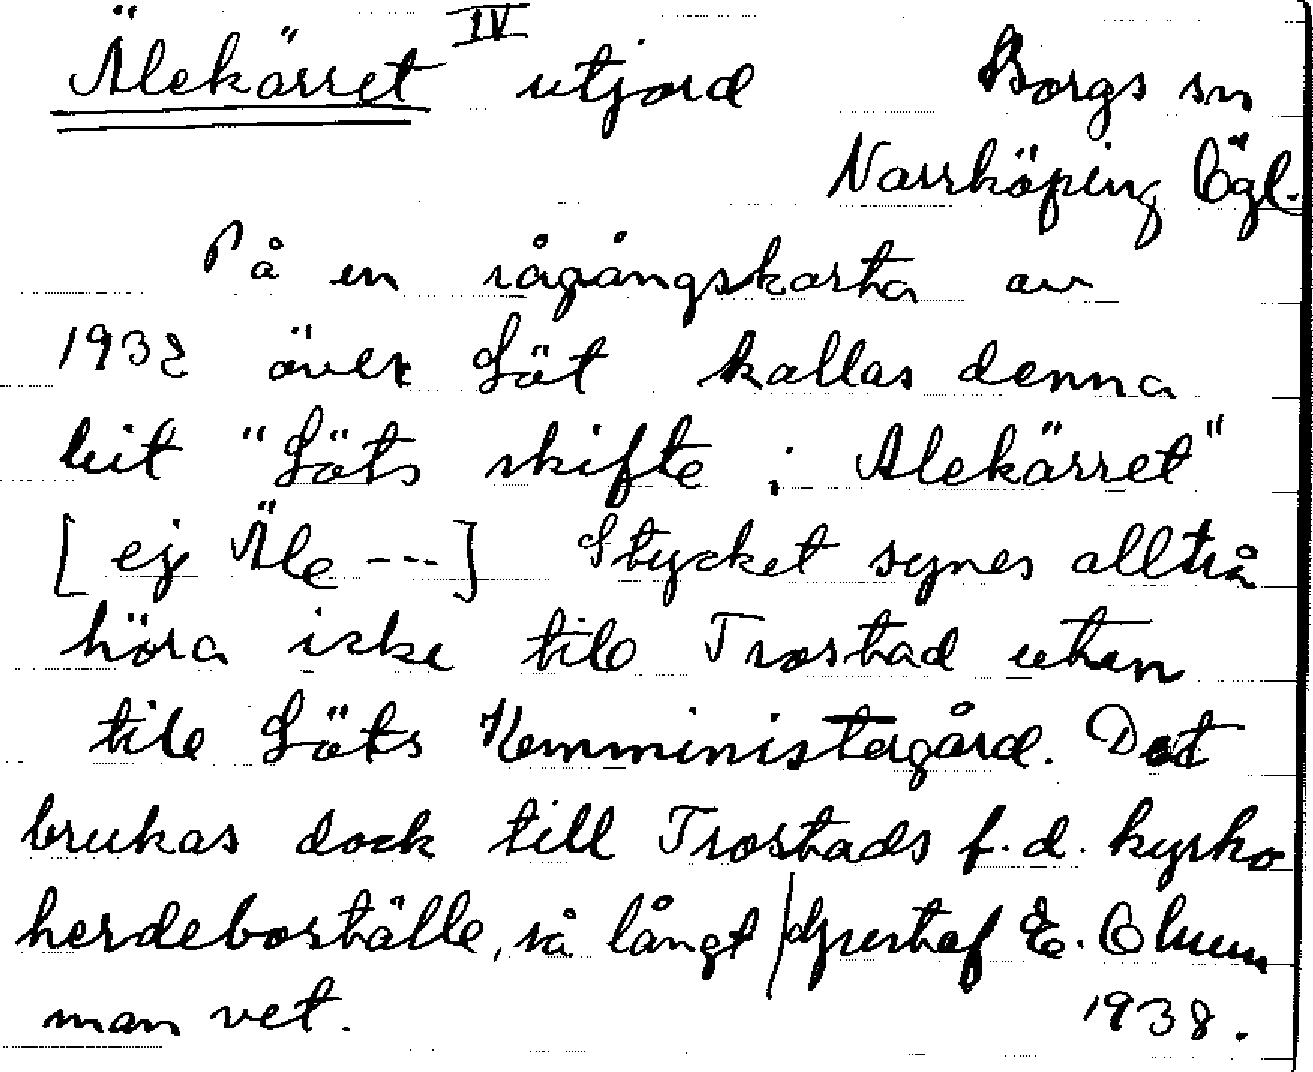 Älekärret IV utjord Borgs sn
Norrköping Ögl.
På en rågångskarta av
1932 över Löt kallas denna
bit "Löts skifte i Alekärret"
[ej Äle ---] Stycket synes alltså
höra icke till Trostad utan
till Löts Komministergård. Det
brukas dock till Trostads f.d. kyrko
herdeboställe, så långt / Gustaf E. Ohlsson
man vet. 1938.